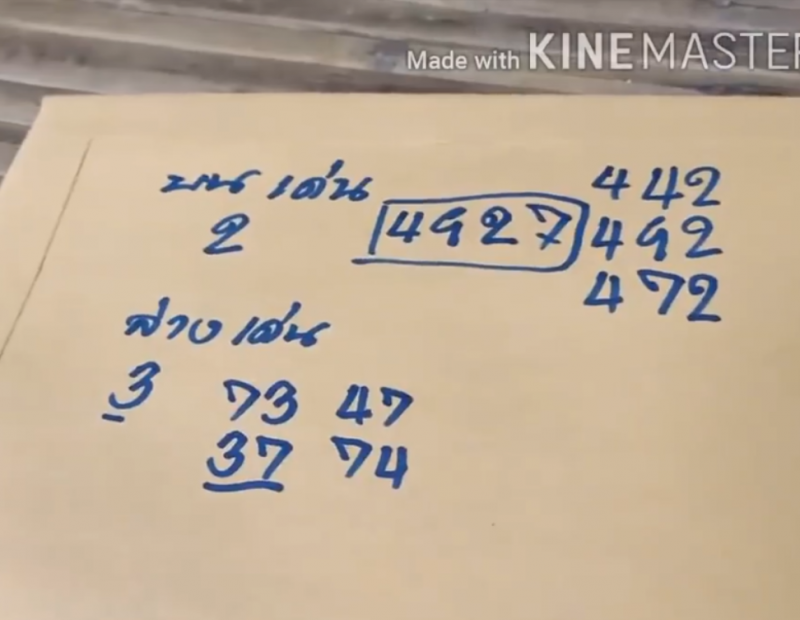 Made with KINEMASTER
บน เด่น
2
4927
442
492
472
ล่าง เด่น
3
73 47
37 74